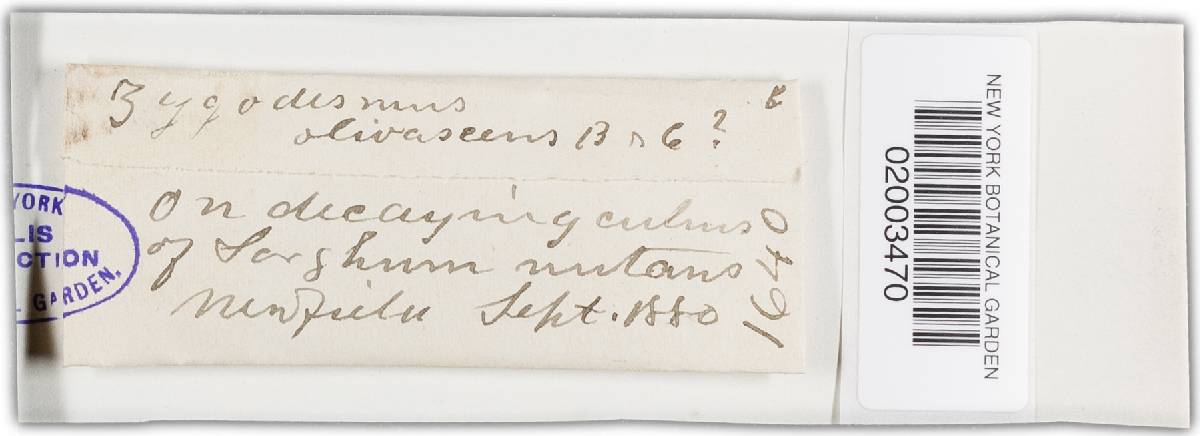 Zygodesmus
olivascens B & C ?
On decaying culms
of Sorghum nutans
Newfield Sept. 1880
1640
YORK
LIS
CTION
L GARDEN.
NEW YORK BOTANICAL GARDEN
02003470